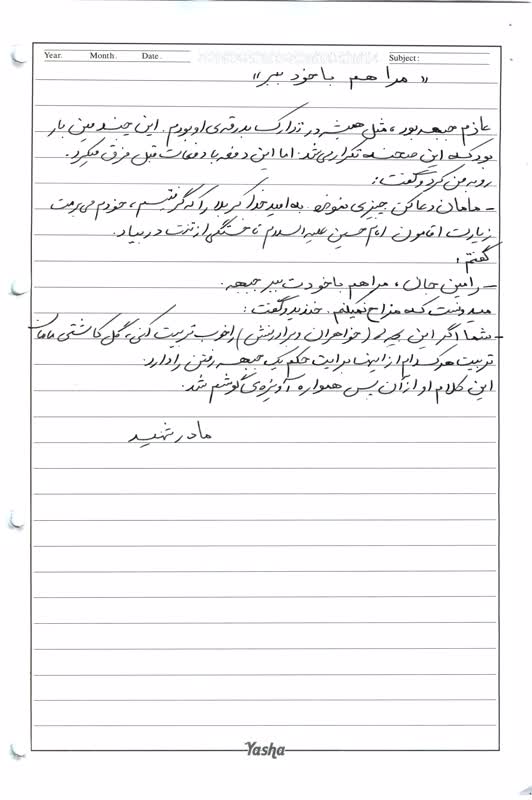 Year. Month. Date. Subject:
« مرا هم با خود ببر »
عازم جبهه بود، مثل همیشه در تدارکات بدرقه‌ی او بودم. این چندمین بار
بود که این صحنه تکرار می‌شد. اما این دفعه با دفعات قبل فرق میکرد.
رو به من کرد و گفت:
- مامان دعا کن چیزی نمونده به امید خدا کربلا را که گرفتیم، خودم می‌برمت
زیارت آقامون امام حسین علیه السلام تا خستگی از تنت در بیاد.
گفتم:
- رامین جان، مرا هم با خودت ببر جبهه.
میدونست که مزاح نمیکنم. خندید و گفت:
- شما اگر این بچه‌ها (خواهران و برادرانش) را خوب تربیت کنی، گل کاشتی مامان
تربیت هر کدام از اینها برایت حکم یک جبهه رفتن را دارد.
این کلام او از آن پس همواره آویزه‌ی گوشم شد.
مادر شهید
Yasha